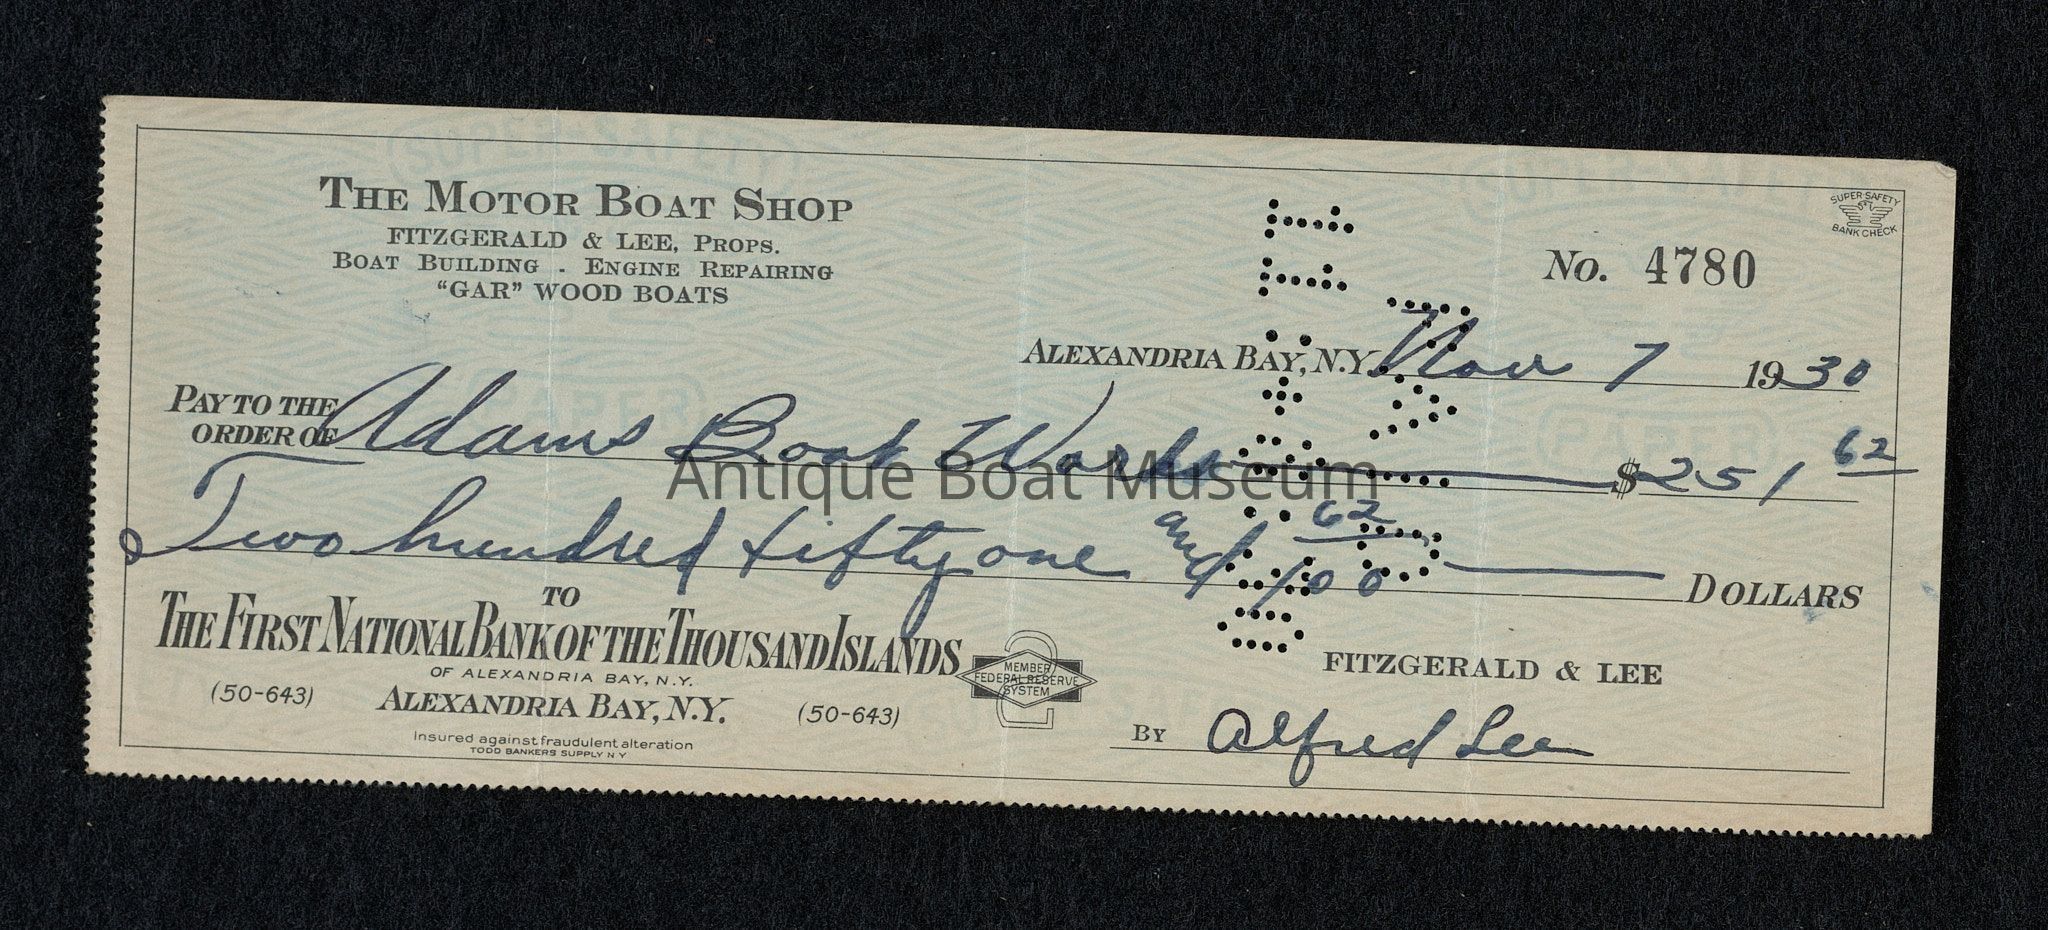 SUPER-SAFETY
THE MOTOR BOAT SHOP
FITZGERALD & LEE, PROPS.
BOAT BUILDING - ENGINE REPAIRING
"GAR" WOOD BOATS
SUPER-SAFETY
BANK CHECK
No. 4780
ALEXANDRIA BAY, N.Y. Nov 7 1930
PAY TO THE
ORDER OF Adams Boat Works $251 62
Antique Boat Museum
Two hundred fifty one and 62/100 DOLLARS
TO
THE FIRST NATIONAL BANK OF THE THOUSAND ISLANDS
OF ALEXANDRIA BAY, N.Y.
(50-643) ALEXANDRIA BAY, N.Y. (50-643)
Insured against fraudulent alteration
TODD BANKERS SUPPLY N Y
MEMBER
FEDERAL RESERVE
SYSTEM
2
FITZGERALD & LEE
BY Alfred Lee